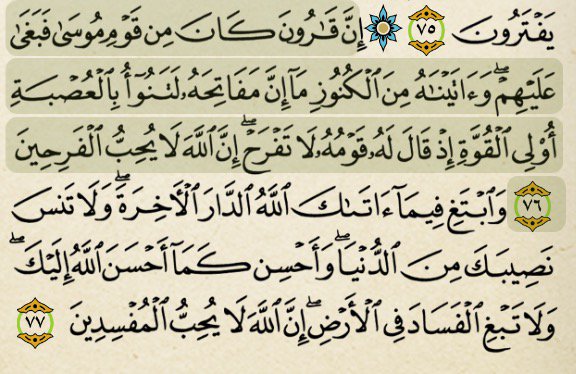 يَفْتَرُونَ ٧٥ إِنَّ قَارُونَ كَانَ مِن قَوْمِ مُوسَىٰ فَبَغَىٰ
عَلَيْهِمْ ۖ وَءَاتَيْنَٰهُ مِنَ ٱلْكُنُوزِ مَآ إِنَّ مَفَاتِحَهُۥ لَتَنُوٓأُ بِٱلْعُصْبَةِ
أُو۟لِى ٱلْقُوَّةِ إِذْ قَالَ لَهُۥ قَوْمُهُۥ لَا تَفْرَحْ ۖ إِنَّ ٱللَّهَ لَا يُحِبُّ ٱلْفَرِحِينَ
٧٦ وَٱبْتَغِ فِيمَآ ءَاتَىٰكَ ٱللَّهُ ٱلدَّارَ ٱلْءَاخِرَةَ ۖ وَلَا تَنسَ
نَصِيبَكَ مِنَ ٱلدُّنْيَا ۖ وَأَحْسِن كَمَآ أَحْسَنَ ٱللَّهُ إِلَيْكَ ۖ
وَلَا تَبْغِ ٱلْفَسَادَ فِى ٱلْأَرْضِ ۖ إِنَّ ٱللَّهَ لَا يُحِبُّ ٱلْمُفْسِدِينَ ٧٧